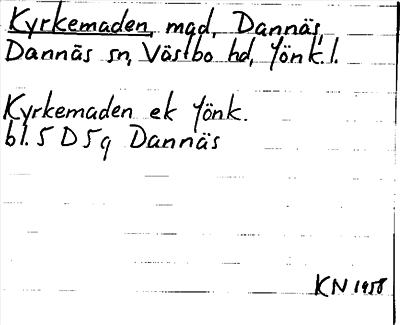 Kyrkemaden, mad, Dannäs,
Dannäs sn, Västbo hd, Jönk. l.
Kyrkemaden ek Jönk.
bl. 5 D 5 q Dannäs
KN 1958